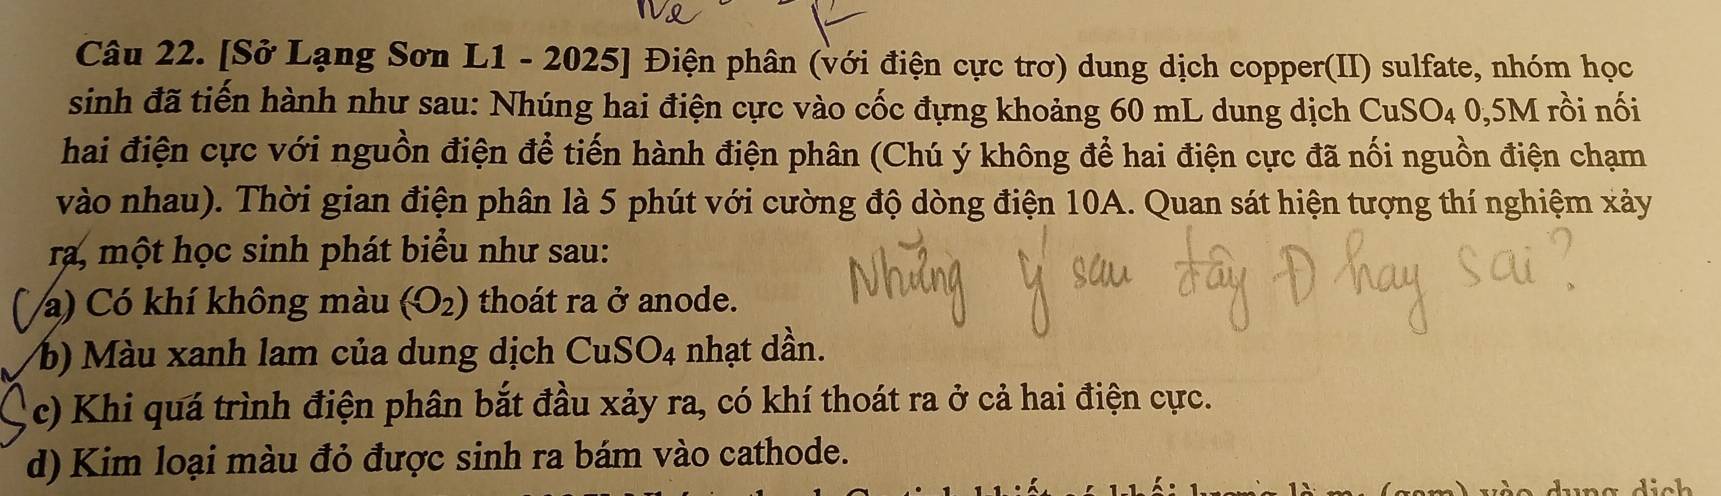 Câu 22. [Sở Lạng Sơn L1 - 2025] Điện phân (với điện cực trơ) dung dịch copper(II) sulfate, nhóm học
sinh đã tiến hành như sau: Nhúng hai điện cực vào cốc đựng khoảng 60 mL dung dịch CuSO₄ 0,5M rồi nối
hai điện cực với nguồn điện để tiến hành điện phân (Chú ý không để hai điện cực đã nối nguồn điện chạm
vào nhau). Thời gian điện phân là 5 phút với cường độ dòng điện 10A. Quan sát hiện tượng thí nghiệm xảy
ra, một học sinh phát biểu như sau:
Những ý sau đây Đ hay sai?
a) Có khí không màu (O₂) thoát ra ở anode.
b) Màu xanh lam của dung dịch CuSO₄ nhạt dần.
c) Khi quá trình điện phân bắt đầu xảy ra, có khí thoát ra ở cả hai điện cực.
d) Kim loại màu đỏ được sinh ra bám vào cathode.